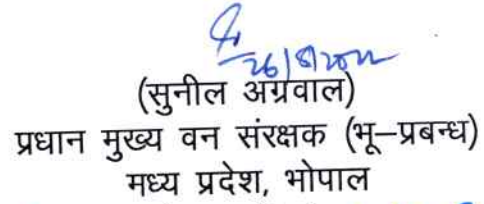 26/8/2022
(सुनील अग्रवाल)
प्रधान मुख्य वन संरक्षक (भू–प्रबन्ध)
मध्य प्रदेश, भोपाल